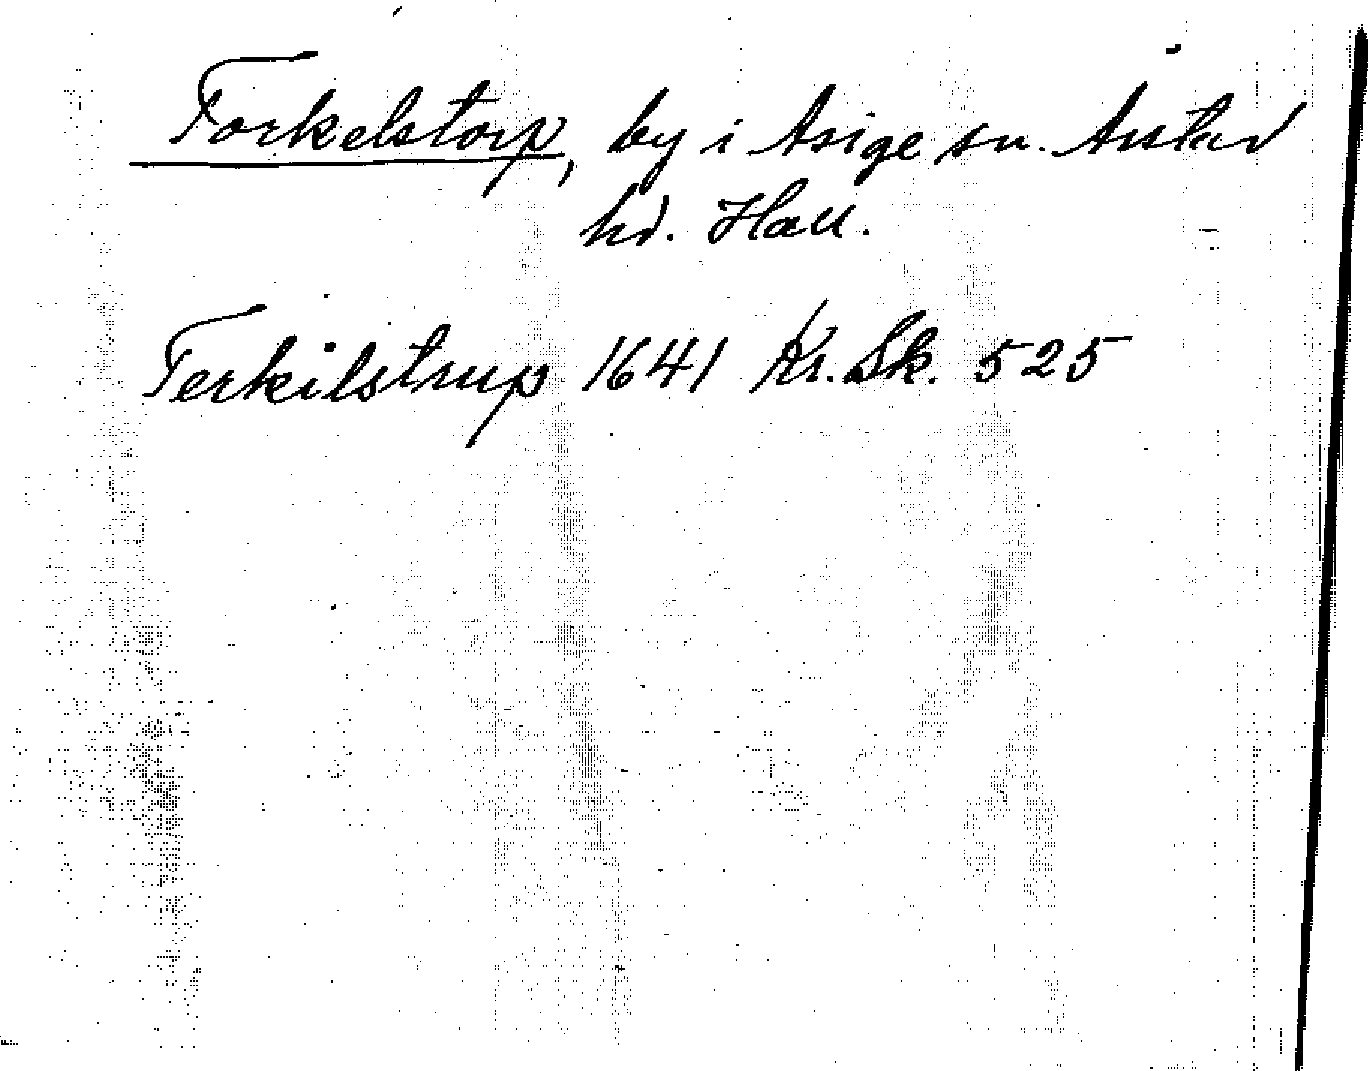 Torkelstorp, by i Asige sn. Årstad
hd. Hall.
Terkilstrup 1641 Kr. Sk. 525